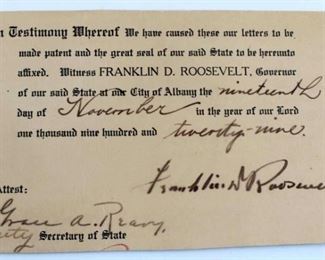 n Testimony Whereof We have caused these our letters to be
made patent and the great seal of our said State to be hereunto
affixed. Witness FRANKLIN D. ROOSEVELT, Governor
of our said State at our City of Albany the nineteenth
day of November in the year of our Lord
one thousand nine hundred and twenty-nine.
Franklin D Roosevel
Attest:
Grace A. Reavy
uty Secretary of State